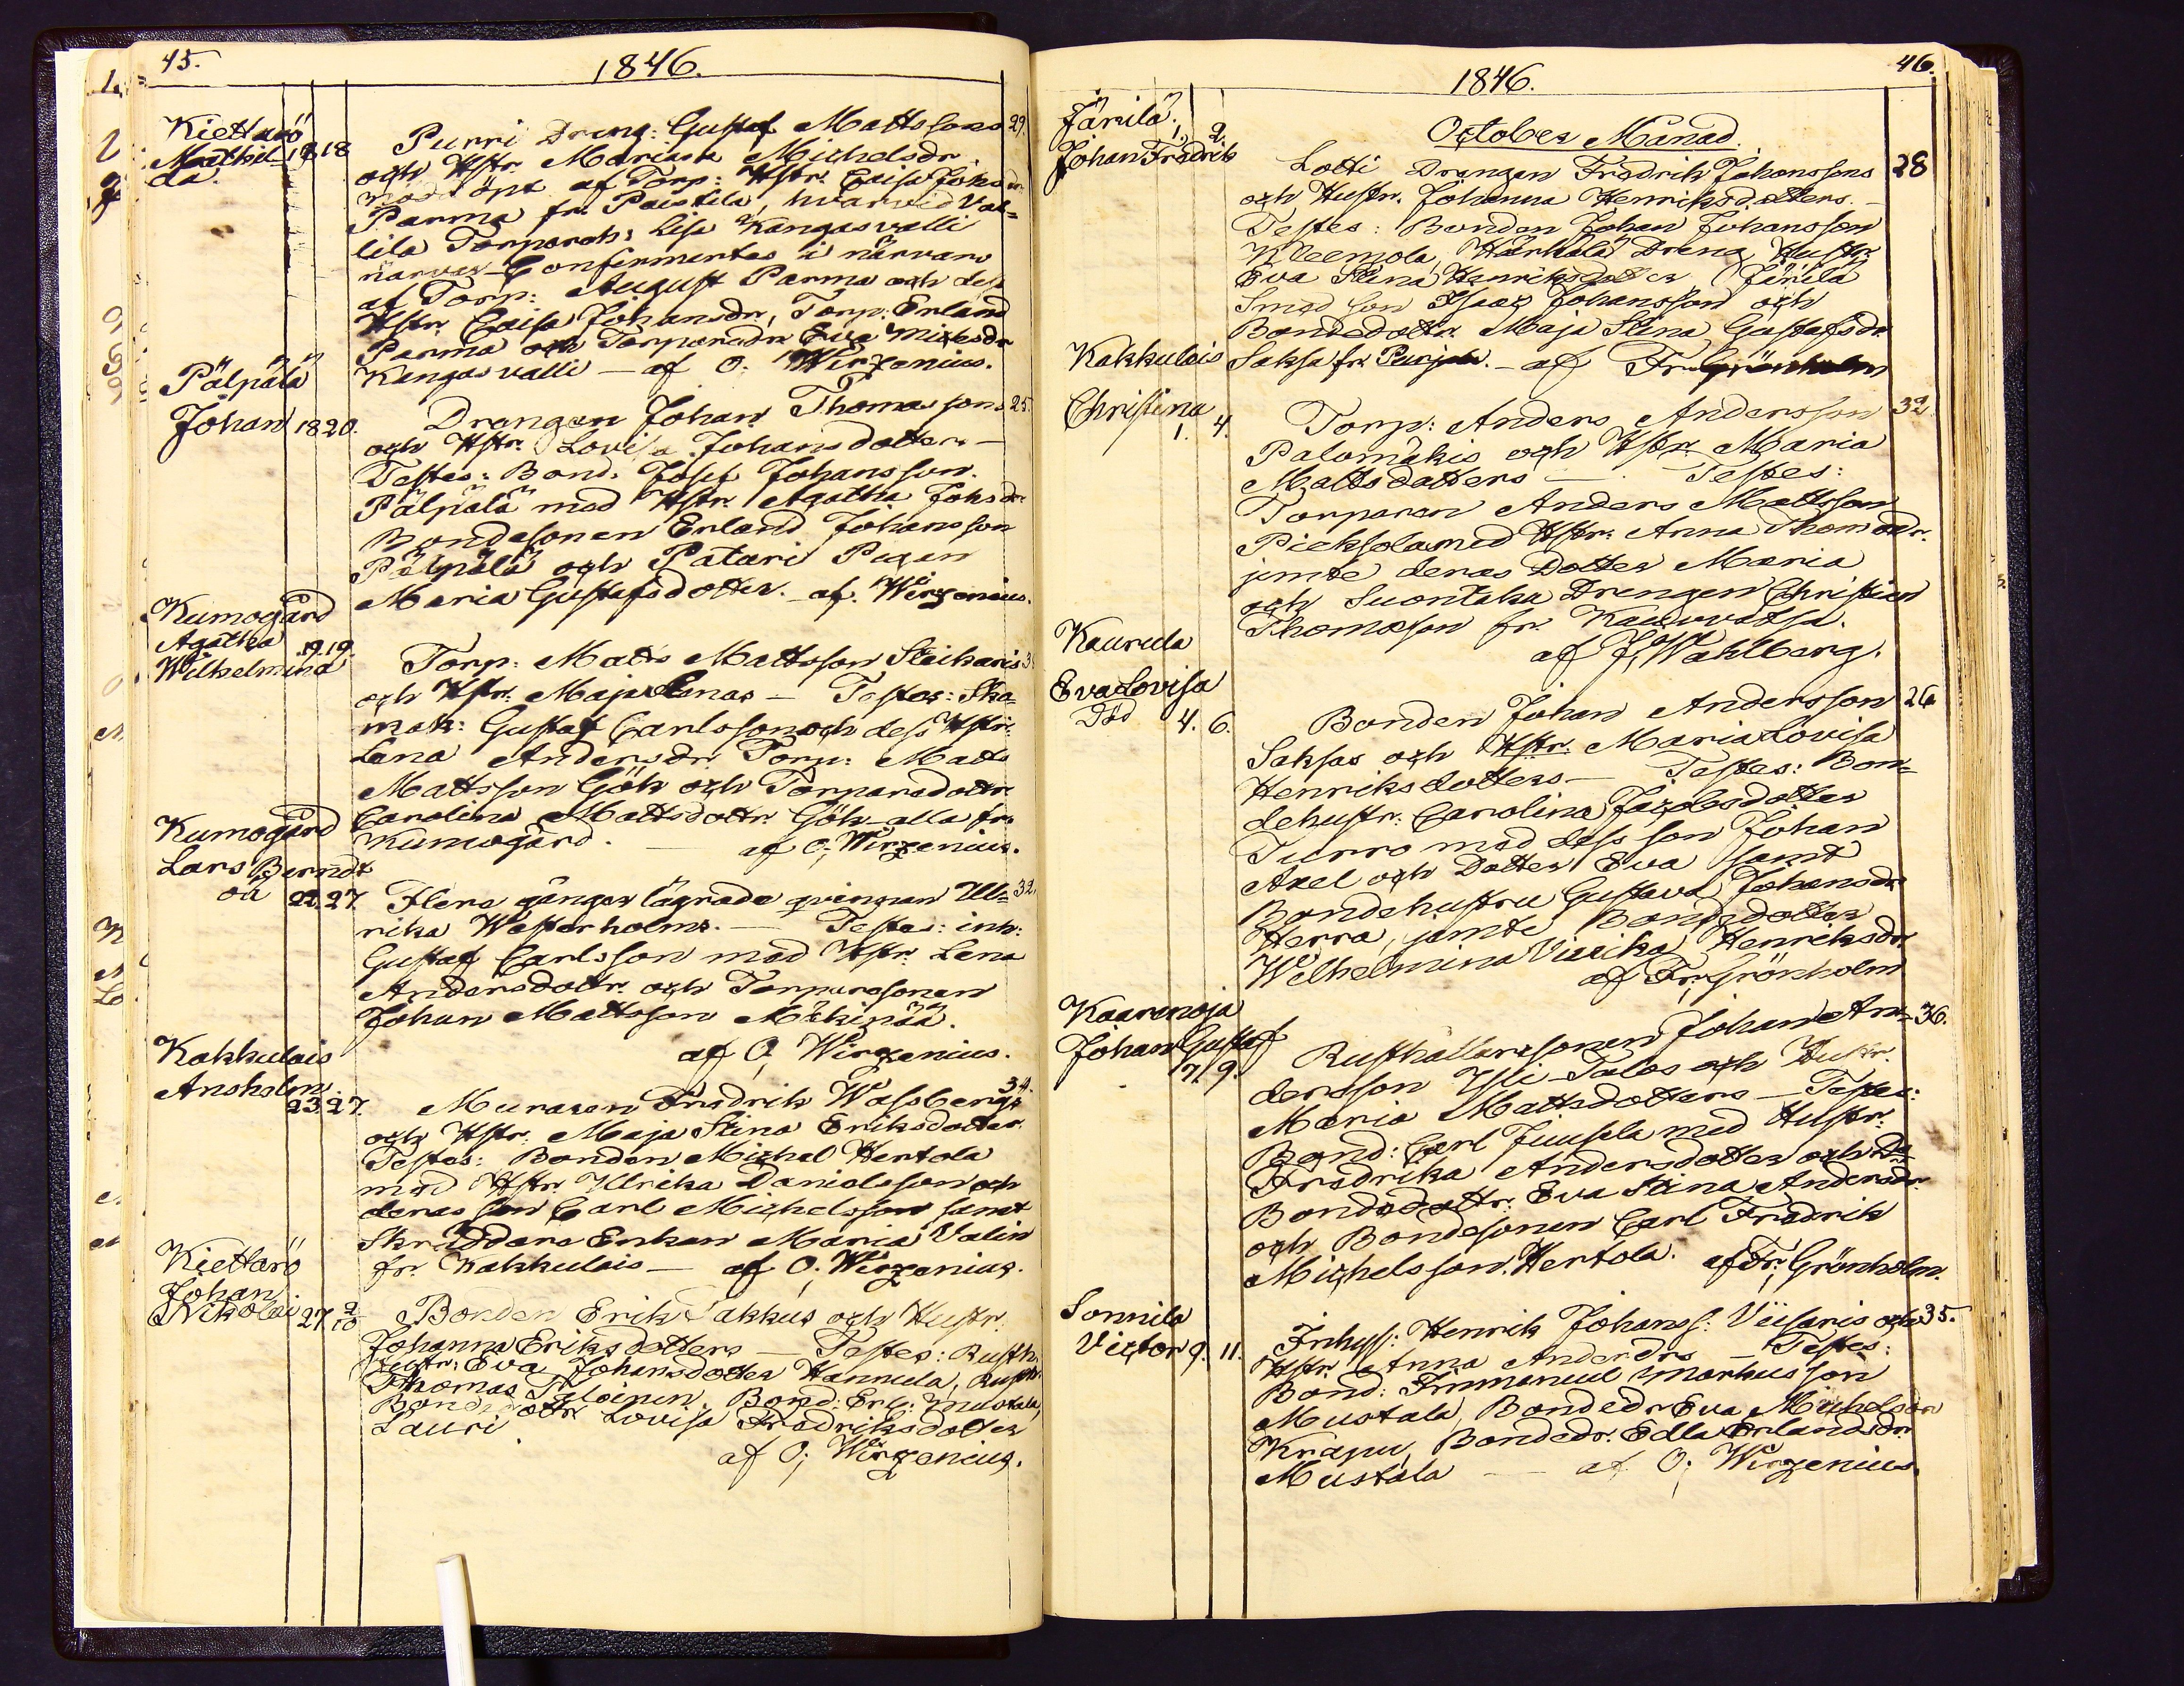 45.
1846.
Kiettarö
Mathil-
da.
18 18
Purri Dreng: Gustaf Mattssons 29.
och Hstr. Mariana Michelsdr.
nöddöpt af Torp: Hstr. Caisa Johsdr
Parma fr. Paistila, hvarvid Val=
lila Torparoh: Lisa Kangasvalli
närvar Confirmertes i närvaro
af Torp: August Parma och dess
Hstr. Caisa Johansdr, Torp: Erland
Parma och Torparedr Eva Mickesdr
Kangasvalli — af O. Wirzenius.
Pälpälä
Johan 18 20.
Drengen Johan Thomassons 25.
och Hstr. Lovisa Johansdotters —
Testes: Bond. Josef Johansson
Pälpälä med Hstr. Agatha Johsdr
Bondesonen Erland Johansson
Pälpälä och Pätäri Pigan
Maria Gustafsdotter. af. Wirzenius.
Kumogård
Agatha
Wilhelmina
19. 19.
Torp: Matts Mattsson Steikaris 3
och Hstr. Maja Lenas — Testes: Sko-
mak: Gustaf Carlsson och dess Hstr:
Lena Andersdr. Torp: Matts
Mattsson Gök och Torparedottr
Carolina Mattsdottr Gök alla fr.
Kumogård. — af O; Wirzenius.
Kumogård
Lars Berndt
oä 22. 27.
Flere gånger lägrade qvinnan Ul= 32.
rika Westerholms. — Testes: inh:
Gustaf Carlsson med Hstr. Lena
Andersdotr. och Torparesonen
Johan Mattsson Mäkinää.
af O, Wirzenius.
Kakkulais
Ansholm
23. 27.
34.
Muraren Fredrik Wassbergs
och Hstr. Maja Stina Eriksdotter.
Testes: Bonden Michel Hertola
med Hstr. Ulrika Danielsson och
deras son Carl Michelsson samt
Skräddare Enkan Maria Valin
fr. Kakkulais — af O. Wirzenius.
Kiettarö
Johan
Nikolai 27. 2/10
Bonden Erik Sakkus och Hustr.
Johanna Eriksdotters — Testes: Rusth.
Hustr: Eva Johansdotter Hannula, Rusth.
Thomas Iloinen, Bond: Erl: Mustala,
Bondedottr Lovisa Fredriksdotter
Lauri
af O; Wirzenius.
46.
1846.
October Månad.
Järilä.
1. 2.
Johan Fredrik
Lotti Drengen Fredrik Johanssons 28
och Hustr. Johanna Henriksdotters. —
Testes: Bonden Johan Johansson
Neemola, Härkälä Dreng Hustr
Eva Stina Henriksdotter Järilä
Smed son Isaac Johansson och
Bondedotr. Maja Stina Gustafsdr
Saksa fr. Purjala. — af Fr. Grönholm
Kakkulais
Christina
1. 4.
Torp: Anders Andersson 32.
Palomäkis och Hstr. Maria
Mattsdotters — Testes:
Torparen Anders Mattsson
Pieksola med Hstr. Anna Thomasdr.
jemte deras Dotter Maria
och Suontaka Drengen Christian
Thomasson fr. Kauvatsa.
af J, W Wahlberg.
Kaurula
Eva Lovisa
Död 4. 6.
Bonden Johan Andersson 26
Saksas och Hstr. Maria Lovisa
Henriksdotters — Testes: Bon=
dehustr: Carolina Jacobsdotter
Turro med dess son Johan
Axel och Dotter Eva samt
Bondehustru Gustava Johansdr
Herra, jemte Bondedotter
Wilhelmina Vissika Henriksdr.
af Fr; Grönholm
Kaarenoja
Johan Gustaf
7. 9.
Rusthållaresonen Johan An= 36.
dersson Yli-Talos och Hustr.
Maria Mattsdotters — Testes:
Bond: Carl Juusela med Hustr:
Fredrika Andersdotter och
Bondedottr: Eva Stina Andersdr.
och Bondesonen Carl Fredrik
Michelsson Hertola. af Fr; Grönholm.
Sonnila
Victor 9. 11.
Inhyss: Henrik Johanss: Viisaris och 35.
Hstr. Anna Andersdrs — Testes:
Bond: Immanuel Markusson
Mustala, Bondedr Eva Michelsdr
Krapu, Bondedr. Edla Erlandsdr
Mustala — af O; Wirzenius.